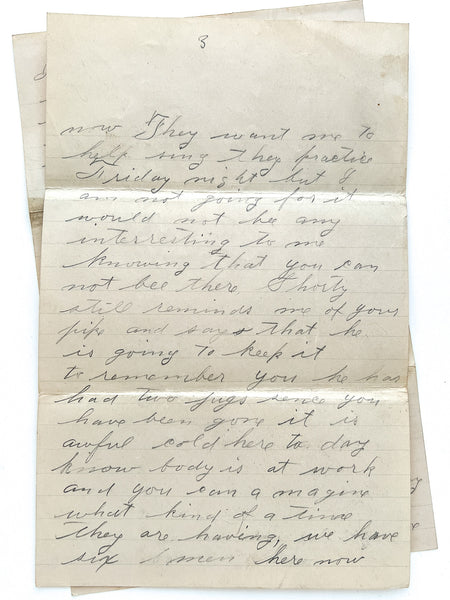 3
now They want me to
help sing they practice
Friday night but I
am not going for it
would not bee any
interresting to me
knowing that you can
not bee there Shorty
still reminds me of your
pipe and says that he
is going to keep it
to remember you he has
had two jugs sence you
have been gone it is
awful cold here to day
know body is at work
and you can a magine
what kind of a time
they are having, we have
six men here now